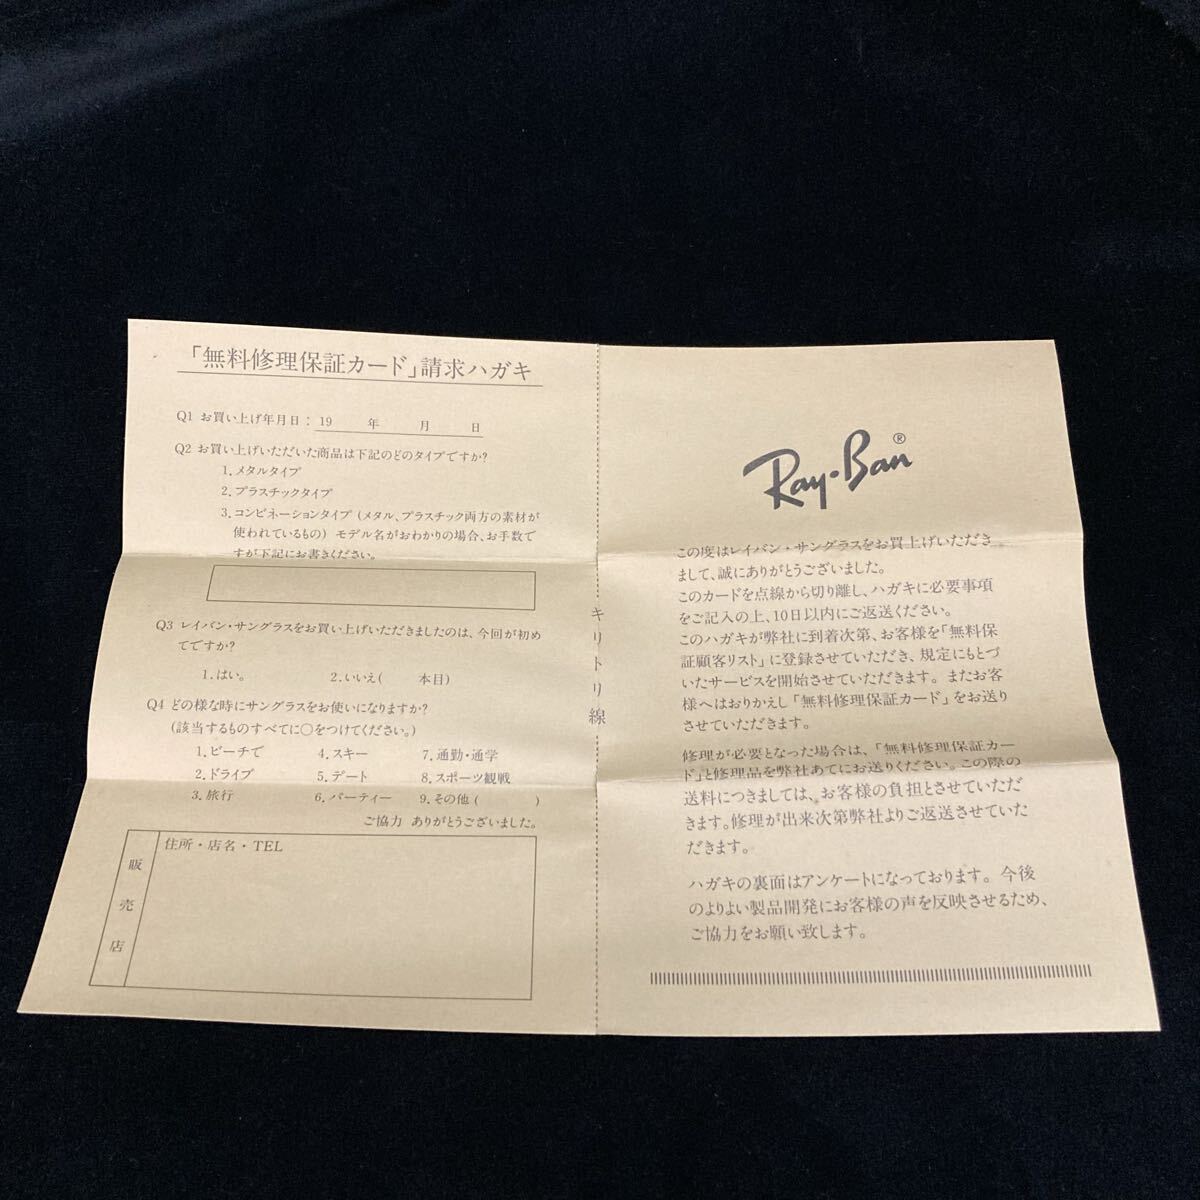 「無料修理保証カード」請求ハガキ
Q1 お買い上げ年月日：19　　年　　月　　日
Q2 お買い上げいただいた商品は下記のどのタイプですか?
1.メタルタイプ
2.プラスチックタイプ
3.コンビネーションタイプ（メタル、プラスチック両方の素材が
使われているもの）モデル名がおわかりの場合、お手数で
すが下記にお書きください。
Q3 レイバン・サングラスをお買い上げいただきましたのは、今回が初め
てですか?
1.はい。　　2.いいえ(　　本目)
Q4 どの様な時にサングラスをお使いになりますか?
(該当するものすべてに○をつけてください。)
1.ビーチで　　4.スキー　　7.通勤・通学
2.ドライブ　　5.デート　　8.スポーツ観戦
3.旅行　　6.パーティー　　9.その他(　　)
ご協力 ありがとうございました。
販売店
住所・店名・TEL
キリトリ線
Ray-Ban®
この度はレイバン・サングラスをお買上げいただき
まして、誠にありがとうございました。
このカードを点線から切り離し、ハガキに必要事項
をご記入の上、10日以内にご返送ください。
このハガキが弊社に到着次第、お客様を「無料保
証顧客リスト」に登録させていただき、規定にもとづ
いたサービスを開始させていただきます。またお客
様へはおりかえし「無料修理保証カード」をお送り
させていただきます。
修理が必要となった場合は、「無料修理保証カー
ド」と修理品を弊社あてにお送りください。この際の
送料につきましては、お客様の負担とさせていただ
きます。修理が出来次第弊社よりご返送させていた
だきます。
ハガキの裏面はアンケートになっております。今後
のよりよい製品開発にお客様の声を反映させるため、
ご協力をお願い致します。